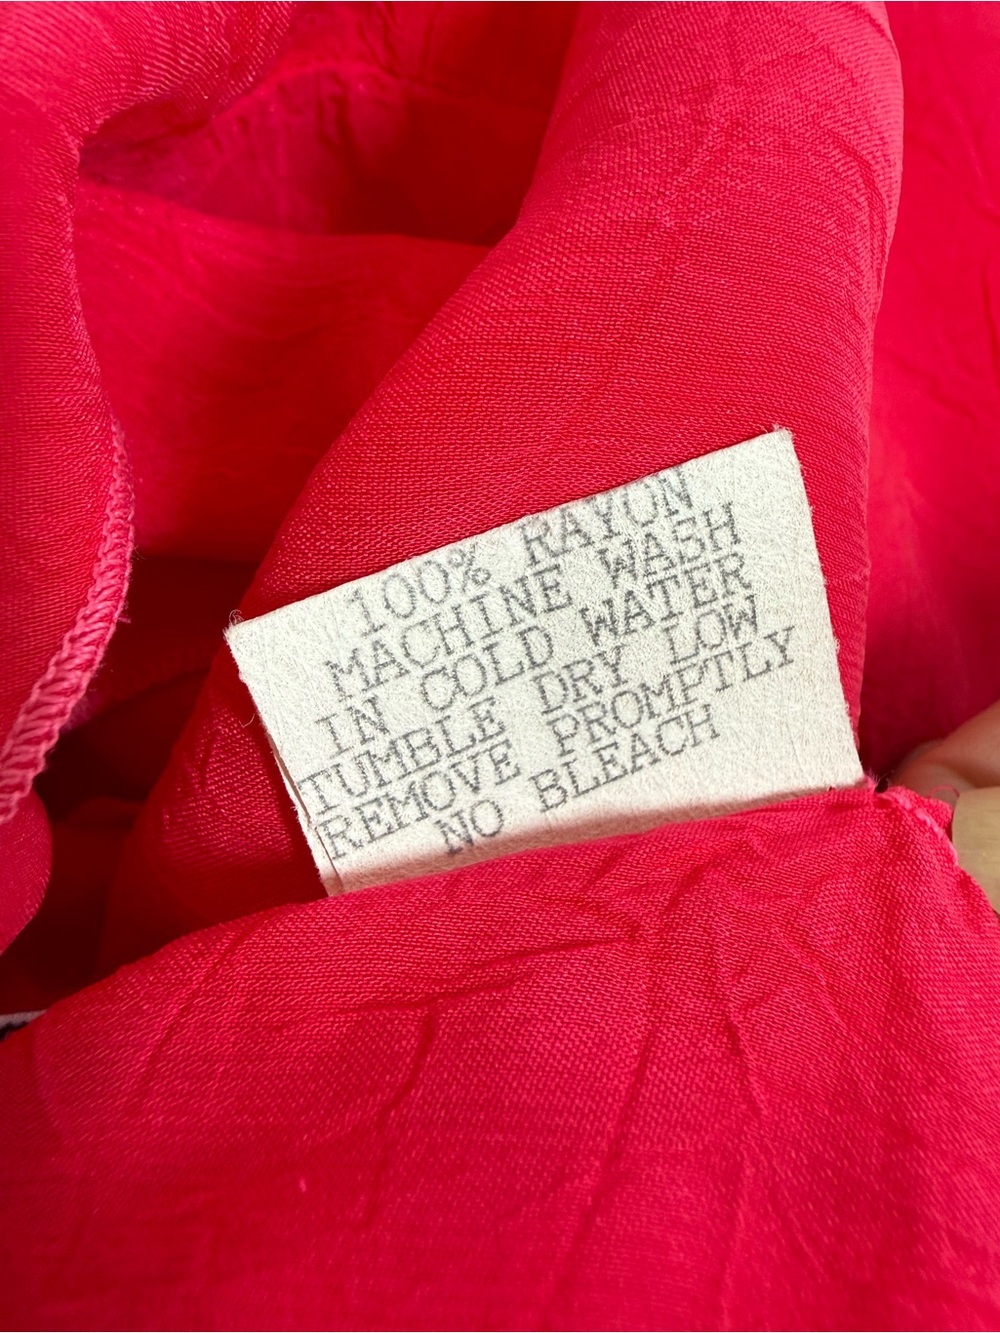 100% RAYON
MACHINE WASH
IN COLD WATER
TUMBLE DRY LOW
REMOVE PROMPTLY
NO BLEACH